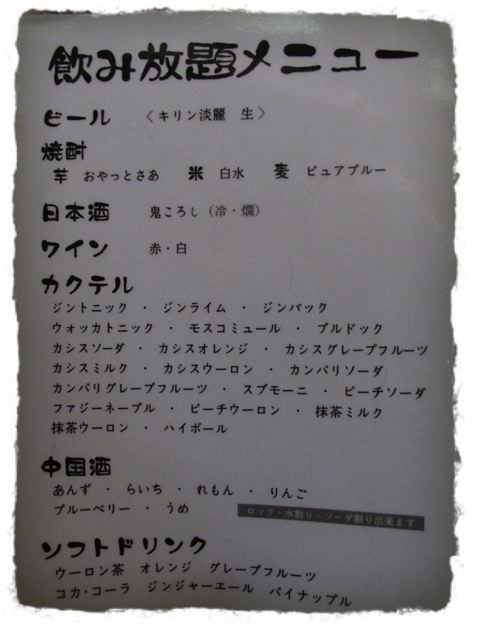 飲み放題メニュー
ビール 〈キリン淡麗 生〉
焼酎
芋 おやっとさあ 米 白水 麦 ピュアブルー
日本酒 鬼ころし（冷・燗）
ワイン 赤・白
カクテル
ジントニック ・ ジンライム ・ ジンバック
ウォッカトニック ・ モスコミュール ・ ブルドック
カシスソーダ ・ カシスオレンジ ・ カシスグレープフルーツ
カシスミルク ・ カシスウーロン ・ カンパリソーダ
カンパリグレープフルーツ ・ スプモーニ ・ ピーチソーダ
ファジーネーブル ・ ピーチウーロン ・ 抹茶ミルク
抹茶ウーロン ・ ハイボール
中国酒
あんず ・ らいち ・ れもん ・ りんご
ブルーベリー ・ うめ
ロック・水割り・ソーダ割り出来ます
ソフトドリンク
ウーロン茶 オレンジ グレープフルーツ
コカ・コーラ ジンジャーエール パイナップル